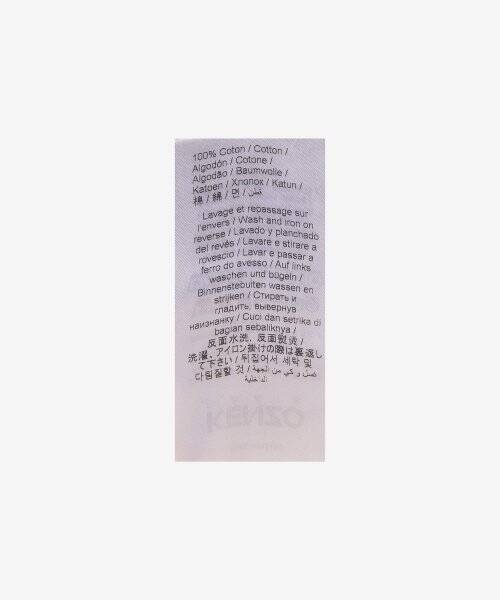 100% Coton / Cotton /
Algodón / Cotone /
Algodão / Baumwolle /
Katoen / Хлопок / Katun /
棉 / 綿 / 면 / قطن
Lavage et repassage sur
l'envers / Wash and iron on
reverse / Lavado y planchado
del revés / Lavare e stirare a
rovescio / Lavar e passar a
ferro do avesso / Auf links
waschen und bügeln /
Binnenstebuiten wassen en
strijken / Стирать и
гладить, вывернув
наизнанку / Cuci dan setrika di
bagian sebaliknya /
反面水洗, 反面熨烫 /
洗濯, アイロン掛けの際は裏返し
て下さい / 뒤집어서 세탁 및
다림질할 것 / غسل و كي من الجهة
الداخلية
KENZO